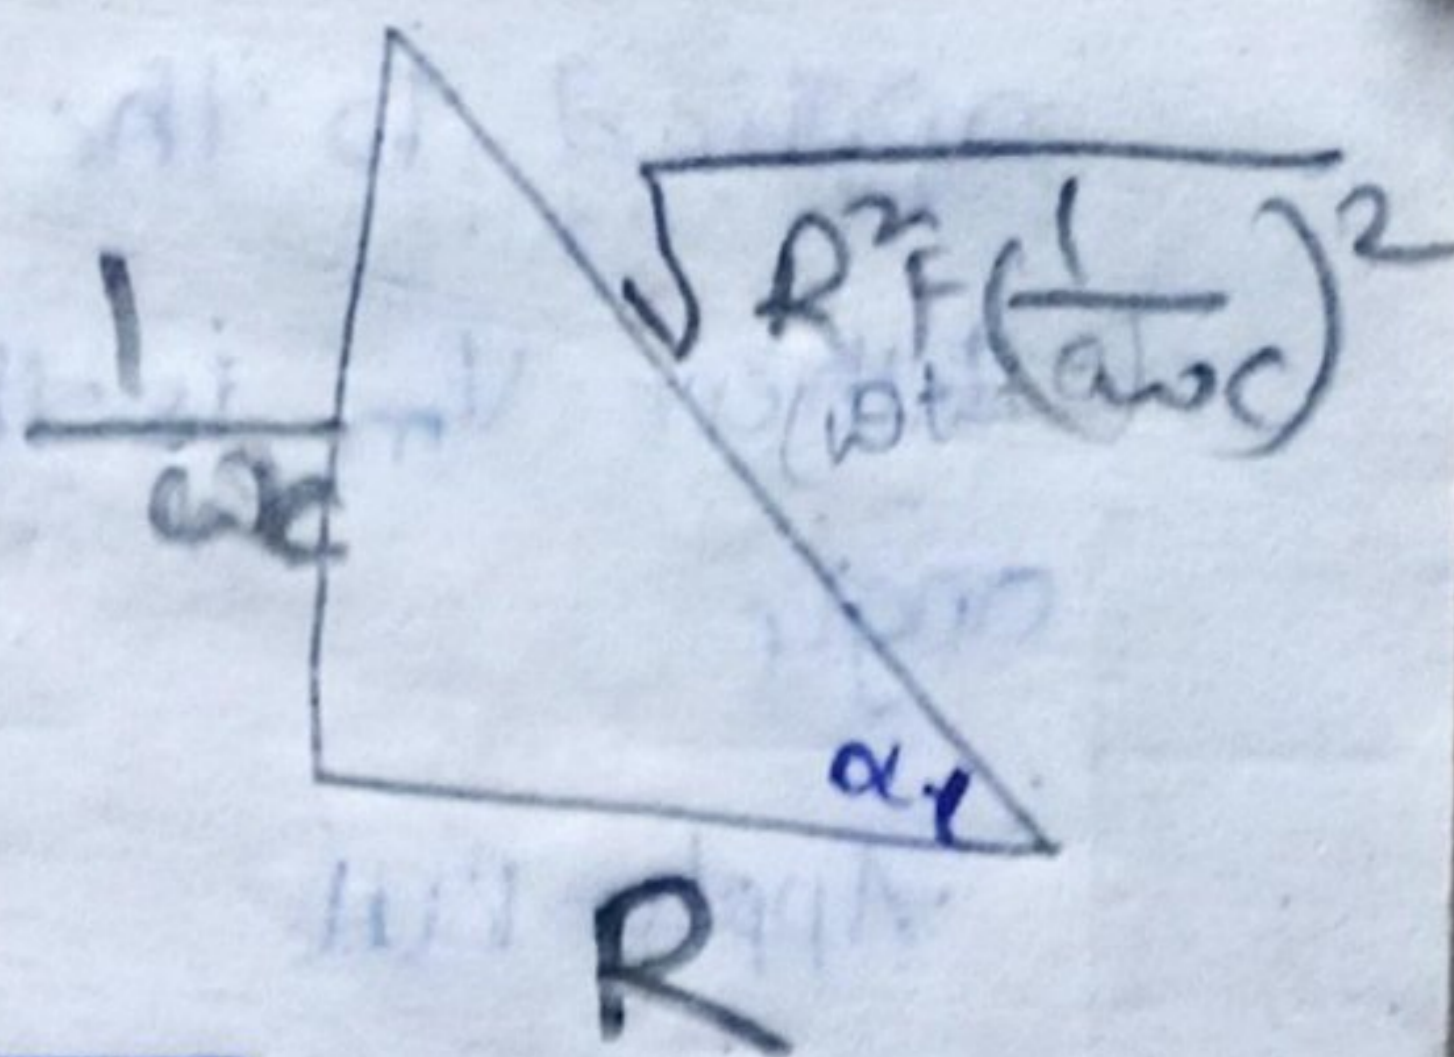 1/ωc
√R²+(1/ωc)²
α
R